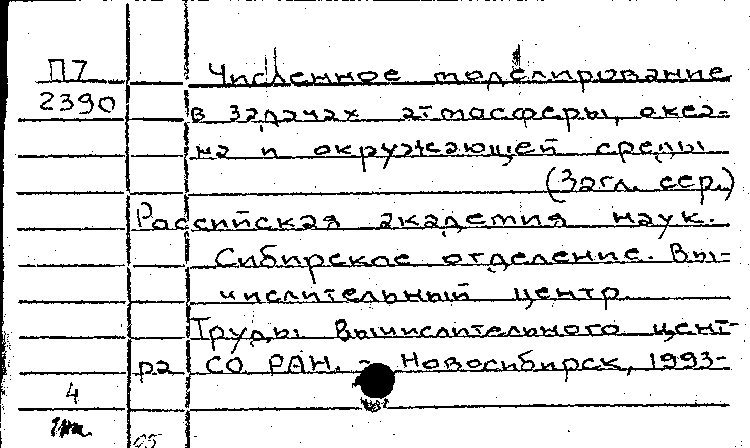 П7
2390
Численное моделирование
в задачах атмосферы, океа-
на и окружающей среды
(Загл. сер.)
Российская академия наук.
Сибирское отделение. Вы-
числительный центр
Труды Вычислительного цент-
ра СО РАН. - Новосибирск, 1993-
4
05